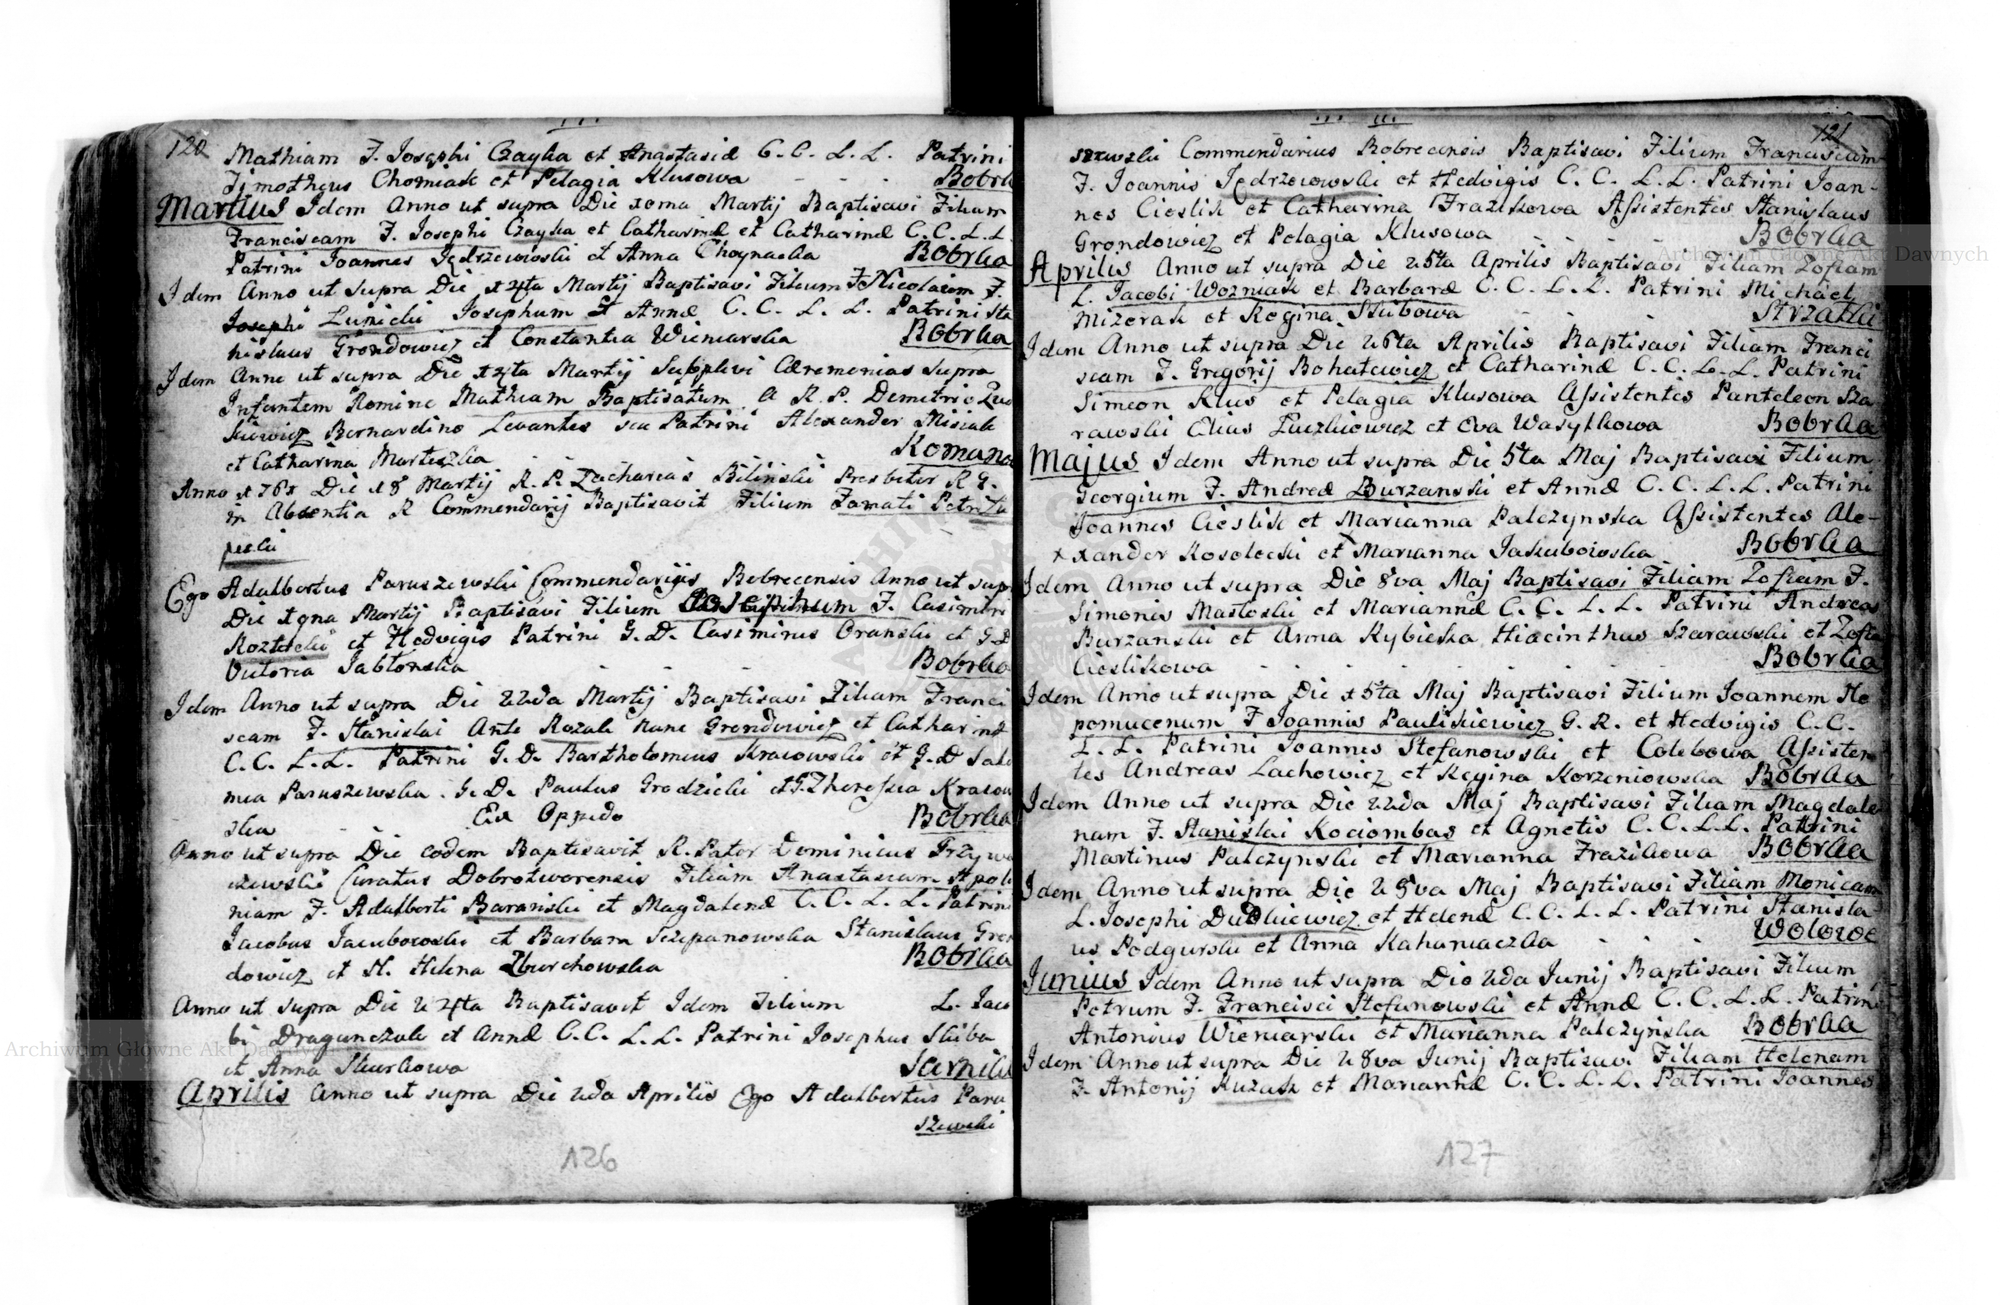 120
Mathiam F. Josephi Czayka et Anastasiæ C. C. L. L. Patrini
Timotheus Chomiak et Pelagia Klusowa - - - Bobrk
Martius Idem Anno ut supra Die xoma Martij Baptisavi Filium
Franciscam F. Josephi Czayka et Catharinæ et Catharinæ C. C. L. L.
Patrini Joannes Jędrzeiowski et Anna Choynacka Bobrka
Idem Anno ut supra Die 14ta Martij Baptisavi Filium F Nicolaum F.
Josephi Lunicki Josephum et Annæ C. C. L. L. Patrini Sta
nislaus Grondowicz et Constantia Wieniarska Bobrka
Idem Anno ut supra Die 14ta Martij Supplevi Cæremonias supra
Infantem Nomine Mathiam Baptisatum a R. P. Demetrio
kiewicz Bernardino Levantes seu Patrini Alexander Misiak
et Catharina Marteczka - - - Romano
Anno 1761 Die 18 Martij R. P. Zacharias Biliński Presbiter R. G.
in Absentia R Commendarij Baptisavit Filium Fomati
peski
Ego Adalbertus Paruszewski Commendarius Bobrecensis Anno ut sup
Die 19na Martij Baptisavi Filium Josephum F. Casimiri
et Hedvigis Patrini G. D. Casimirus Oranski et G. D
Victoria Jabłonska - - - Bobrka
Idem Anno ut supra Die 22da Martij Baptisavi Filiam Franci
scam F. Stanislai Ante Kozak Nunc Grondowicz et Catharinæ
C. C. L. L. Patrini G. D. Bartholomeus Kraiowski et G. D Salo
mea Paruszewska. G. D. Paulus Grodzicki et G. Theressia Kraiow
ska - Ex Oppido Bobrka
Anno ut supra Die eodem Baptisavit R. Pater Dominicus Trzywa
Curatus Dobrotworensis Filiam Anastasiam Apolo
niam F. Adalberti Barański et Magdalenæ C. C. L. L. Patrini
Jacobus Jacubowski et Barbara Szczepanowska Stanislaus Gron
dowicz et H. Helena Zburchowska Bobrka
Anno ut supra Die 24ta Baptisavit Idem Filium L. Jaco
bi Dragunczuk et Annæ C. C. L. L. Patrini Josephus Skiba
et Anna Skurkowa
Aprilis Anno ut supra Die 2da Aprilis Ego Adalbertus Paru
szewski
126
121
szewski Commendarius Bobrecensis Baptisavi Filium Franciscum
F. Joannis Jędrzeiowski et Hedvigis C. C. L. L. Patrini Joan-
nes Cieslik et Catharina Frazikowa Assistentes Stanislaus
Grondowicz et Pelagia Klusowa - - - Bobrka
Aprilis Anno ut supra Die 25ta Aprilis Baptisavi Filiam Zofiam
L. Jacobi Wozniak et Barbaræ C. C. L. L. Patrini Michael
Mizerak et Regina Skibowa - - - Strzałki
Idem Anno ut supra Die 26ta Aprilis Baptisavi Filiam Franci
scam F. Gregorij Bohatewicz et Catharinæ C. C. L. L. Patrini
Simeon Klus et Pelagia Klusowa Assistentes Panteleon Sza-
rawski Elias et Eva Wasylkowa Bobrka
Majus Idem Anno ut supra Die 5ta Maj Baptisavi Filium
Georgium F. Andreæ Burzanski et Annæ C. C. L. L. Patrini
Joannes Cieslik et Marianna Palczynska Assistentes Ale-
xander Kosolecki et Marianna Jakubowska Bobrka
Idem Anno ut supra Die 8va Maj Baptisavi Filiam Zofiam F.
Simonis Masłoski et Mariannæ C. C. L. L. Patrini Andreas
Burzanski et Anna Rybicka Hiacinthus Szarawski et Zofia
Cieslikowa - - - Bobrka
Idem Anno ut supra Die 15ta Maj Baptisavi Filium Joannem Ne
pomucenum F Joannis Paulikiewicz G. R. et Hedvigis C. C.
L. L. Patrini Joannes Stefanowski et Colebowa Assisten
tes Andreas Lachowicz et Regina Korzeniowska Bobrka
Idem Anno ut supra Die 22da Maj Baptisavi Filiam Magdale
nam F. Stanislai Kociombas et Agnetis C. C. L. L. Patrini
Martinus Palczynski et Marianna Frazikowa Bobrka
Idem Anno ut supra Die 28va Maj Baptisavi Filiam Monicam
L. Josephi Dudkiewicz et Helenæ C. C. L. L. Patrini Stanisla
us Podgurski et Anna Kahaniaczka - - Wołowe
Junius Idem Anno ut supra Die 2da Junij Baptisavi Filium
Petrum F. Francisci Stefanowski et Annæ C. C. L. L. Patrini
Antonius Wieniarski et Marianna Palczyńska Bobrka
Idem Anno ut supra Die 28va Junij Baptisavi Filiam Helenam
F. Antonij Kuzak et Mariannæ C. C. L. L. Patrini Joannes
127
Archiwum Główne Akt Dawnych
Archiwum Główne Akt Dawnych